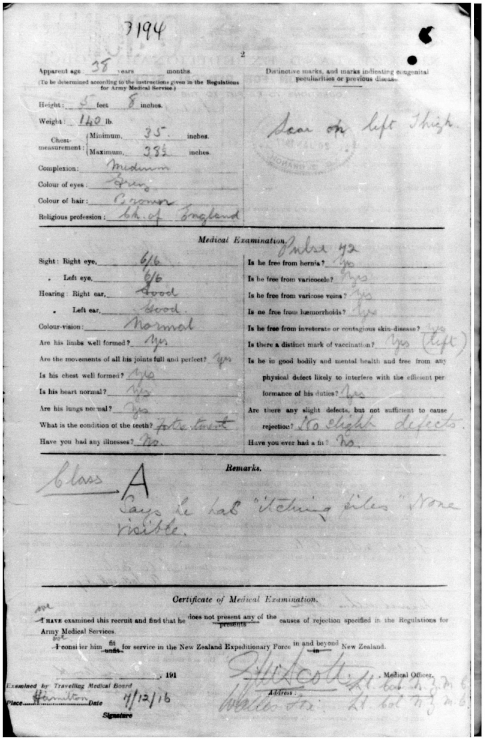 3194
2
Apparent age 38 years months.
(To be determined according to the instructions given in the Regulations for Army Medical Service.)
Height: 5 feet 8 inches.
Weight: 140 lb.
Chest measurement: Minimum, 35 inches.
Maximum, 38½ inches.
Complexion: Medium
Colour of eyes: Grey
Colour of hair:
Religious profession: Ch. of England
Distinctive marks, and marks indicating congenital
peculiarities or previous disease.
Scar on left Thigh.
Medical Examination.
Pulse 72
Sight: Right eye, 6/6
Left eye, 6/6
Hearing: Right ear, Good
Left ear, Good
Colour-vision: Normal
Are his limbs well formed? Yes
Are the movements of all his joints full and perfect? Yes
Is his chest well formed? Yes
Is his heart normal? Yes
Are his lungs normal? Yes
What is the condition of the teeth?
Have you had any illnesses? No.
Is he free from hernia? Yes
Is he free from varicocele? Yes
Is he free from varicose veins? Yes
Is he free from hæmorrhoids? Yes
Is he free from inveterate or contagious skin-disease? Yes
Is there a distinct mark of vaccination? Yes (left)
Is he in good bodily and mental health and free from any
physical defect likely to interfere with the efficient per-
formance of his duties? Yes
Are there any slight defects, but not sufficient to cause
rejection? No slight defects.
Have you ever had a fit? No.
Remarks.
Class A
Says he has "itching piles" None
visible.
Certificate of Medical Examination.
we
I HAVE examined this recruit and find that he does not present any of the causes of rejection specified in the Regulations for
Army Medical Services.
we
I consider him fit for service in the New Zealand Expeditionary Force in and beyond New Zealand.
191
Medical Officer.
Examined by Travelling Medical Board
Address: Lt Col N.Z.M.C.
Place Hamilton Date 4/12/16
Lt Col N.Z.M.C.
Signature